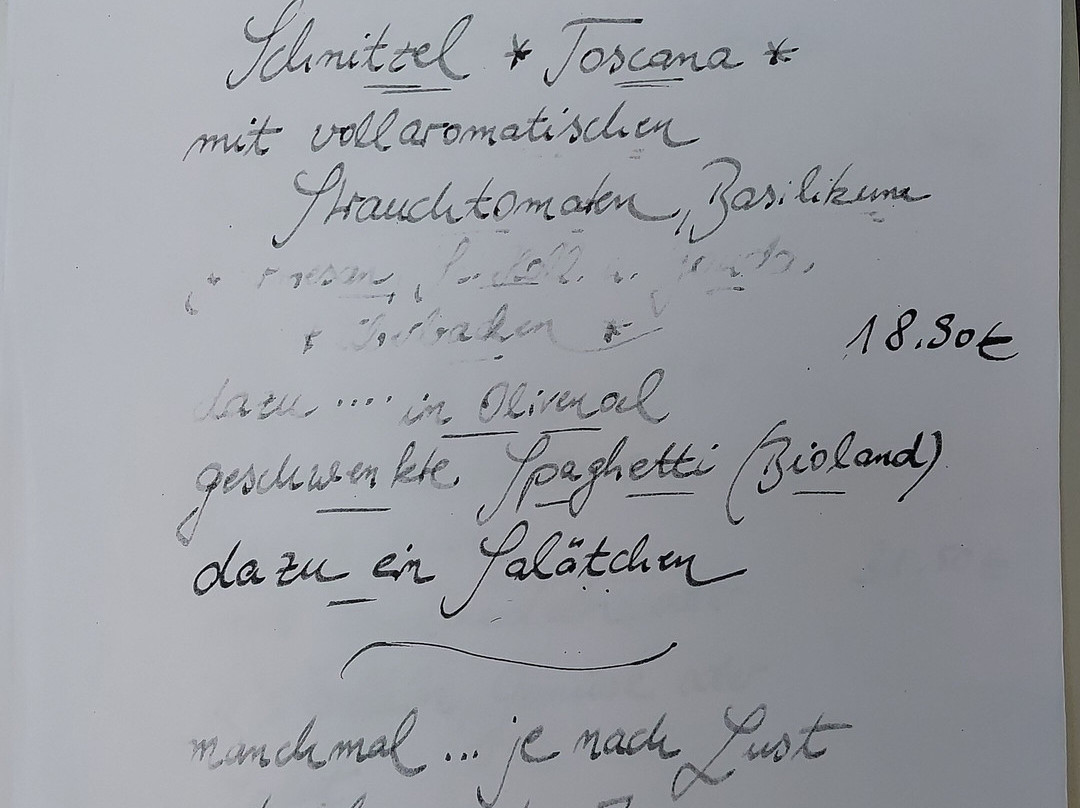 Schnitzel * Toscana *
mit vollaromatischen
Strauchtomaten, Basilikum
* überbacken *
18.90€
dazu .... in Olivenöl
geschwenkte Spaghetti (Bioland)
dazu ein Salätchen
manchmal ... je nach Lust